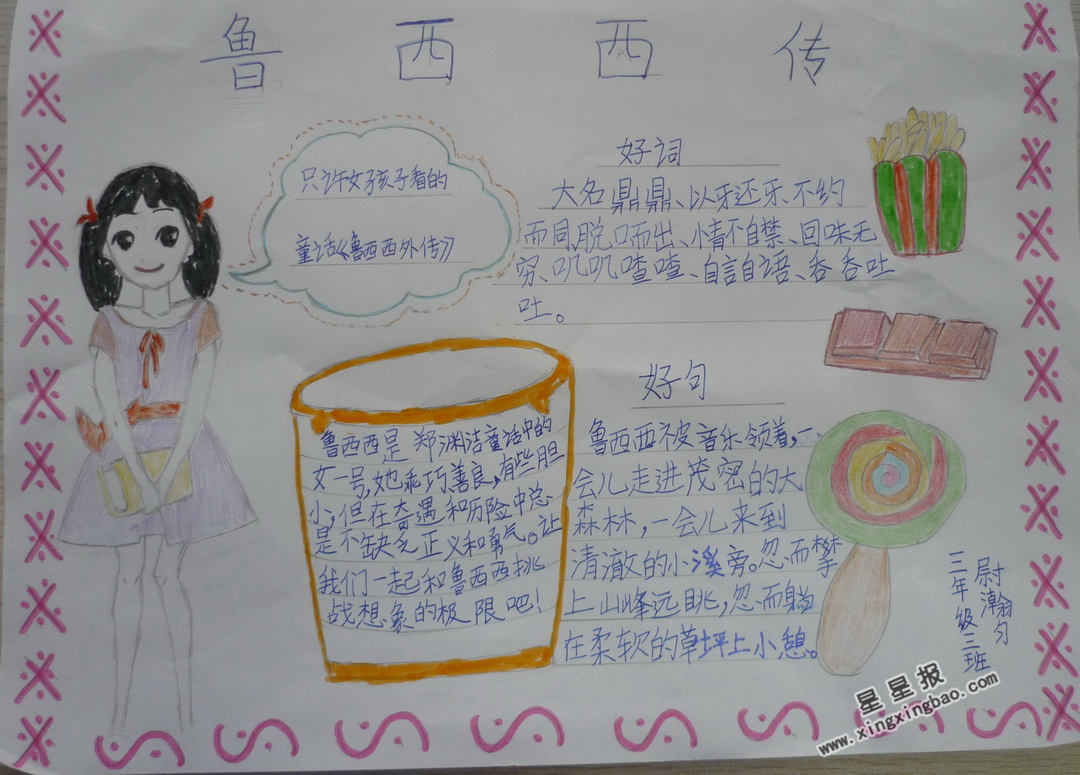 鲁西西传
只许女孩子看的
童话《鲁西西外传》
好词
大名鼎鼎、以牙还牙、不约
而同、脱口而出、情不自禁、回味无
穷、叽叽喳喳、自言自语、吞吞吐
吐。
鲁西西是郑渊洁童话中的
女一号,她乖巧善良,有些胆
小,但在奇遇和历险中总
是不缺乏正义和勇气。让
我们一起和鲁西西挑
战想象的极限吧!
好句
鲁西西被音乐领着,一
会儿走进茂密的大
森林,一会儿来到
清澈的小溪旁。忽而攀
上山峰远眺,忽而躺
在柔软的草坪上小憩。
三年级三班
尉瀚匀
星星报
www.xingxingbao.com